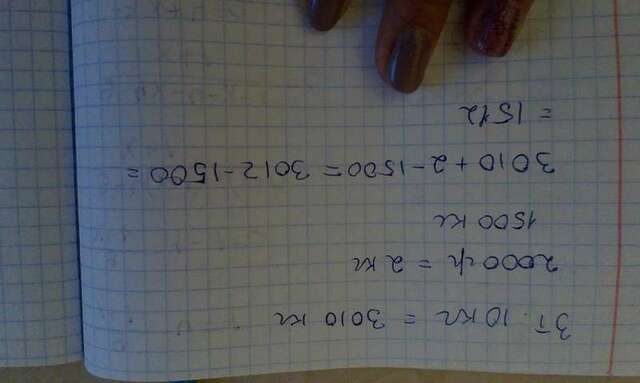 3т 10 кг = 3010 кг
2000 гр = 2 кг
1500 кг
3010 + 2 - 1500 = 3012 - 1500 =
= 1512